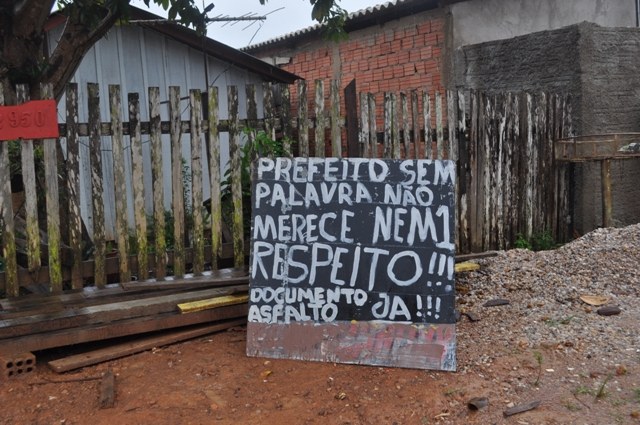 PREFEITO SEM
PALAVRA NÃO
MERECE NEM1
RESPEITO!!!
DOCUMENTO
ASFALTO JA!!!